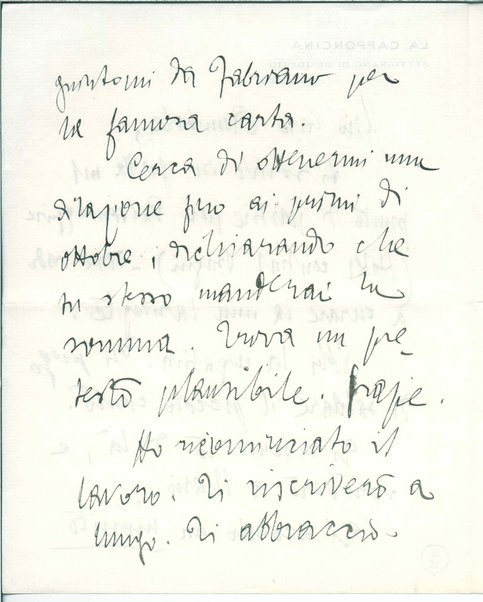 giuntomi da Fabriano per
la famosa carta.
Cerca di ottenermi una
dilazione fino ai primi di
ottobre, dichiarando che
tu stesso manderai la
somma. Trova un pre-
testo plausibile. Grazie.
Ho ricominciato il
lavoro. Ti riscriverò a
lungo. Ti abbraccio.